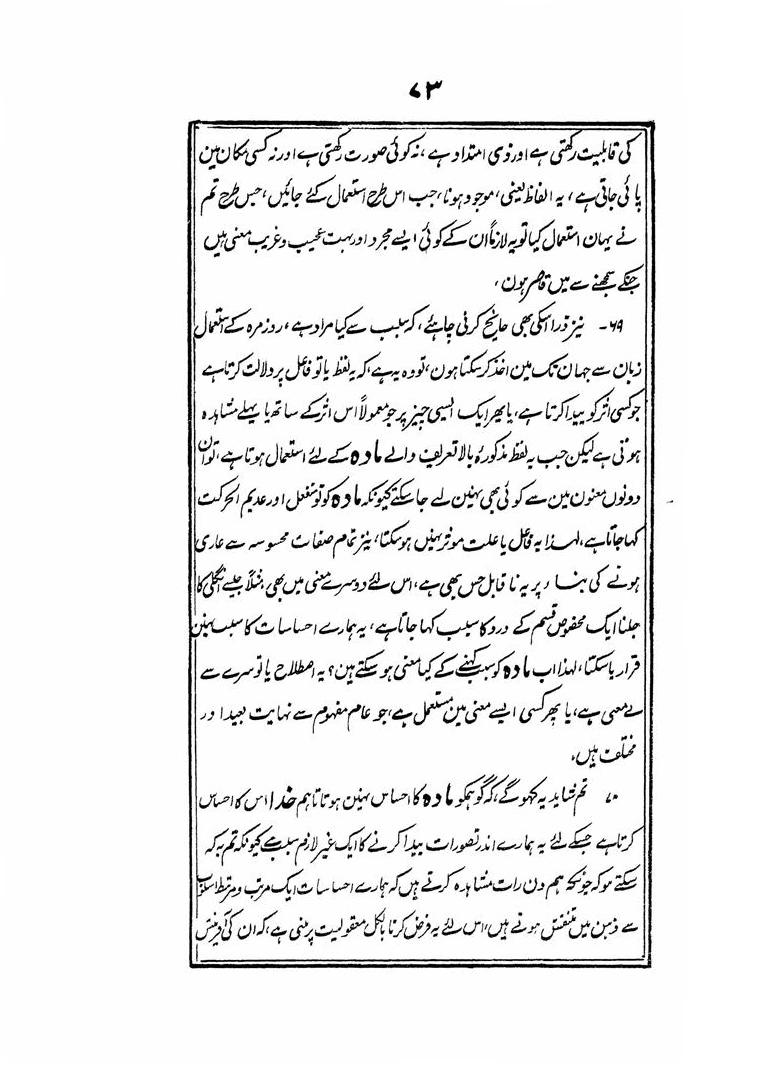 ۷۳
کی قابلیت رکھتی ہے اور ذی امتداد ہے ، نہ کوئی صورت رکھتی ہے اور نہ کسی مکان مین
پائی جاتی ہے ، یہ الفاظ یعنی، موجود ہونا، جب اس طرح استعمال کئے جائیں، جس طرح تم
نے یہان استعمال کیا تو یہ لازماً ان کے کوئی ایسے مجرد اور بہت عجیب و غریب معنی ہیں
جنکے سمجھنے سے میں قاصر ہون ،
۶۹- نیز ذرا اسکی بھی جانچ کرنی چاہئے، کہ سبب سے کیا مراد ہے ، روزمرہ کے استعمال
زبان سے جہان تک مین اخذ کر سکتا ہون، تو وہ یہ ہے، کہ یہ لفظ یا تو فاعل پر دلالت کرتا ہے
جو کسی اثر کو پیدا کرتا ہے، یا پھر ایک ایسی چیز پر جو معمولاً اس اثر کے ساتھ یا پہلے مشاہدہ
ہوتی ہے لیکن جب یہ لفظ مذکورہ بالا تعریف والے مادہ کے لئے استعمال ہوتا ہے، تو ان
دونوں معنون مین سے کوئی بھی نہین لے جا سکتے کیونکہ مادہ کو تو منفعل اور عدیم الحرکت
کہا جاتا ہے، لہذا یہ فاعل یا علت موثر نہیں ہو سکتا، نیز تمام صفات محسوسہ سے عاری
ہونے کی بنا پر یہ نا قابل حس بھی ہے، اس لئے دوسرے معنی میں بھی مثلاً جیسے انگلی کا
جلنا ایک مخصوص قسم کے درد کا سبب کہا جاتا ہے، یہ ہمارے احساسات کا سبب نہین
قرار پا سکتا، لہذا اب مادہ کو سبب کہنے کے کیا معنی ہو سکتے ہین؟ یہ اصطلاح یا تو سرے سے
بے معنی ہے، یا پھر کسی ایسے معنی مین مستعمل ہے، جو عام مفہوم سے نہایت بعید اور
مختلف ہیں،
۷۰ تم شاید یہ کہو گے، کہ گو ہمکو مادہ کا احساس نہین ہوتا تاہم خدا اس کا احساس
کرتا ہے جسکے لئے یہ ہمارے اندر تصورات پیدا کرنے کا ایک غیر لازم سبب ہے کیونکہ تم یہ کہہ
سکتے ہو کہ چونکہ ہم دن رات مشاہدہ کرتے ہیں کہ ہمارے احساسات ایک مرتب و مرتبط اسلوب
سے ذہن میں منقش ہوتے ہیں، اس لئے یہ فرض کرنا بالکل معقولیت پر مبنی ہے، کہ ان کی آفرینش